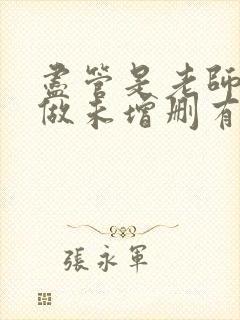 儘管是老師
做未增刪有
張永軍